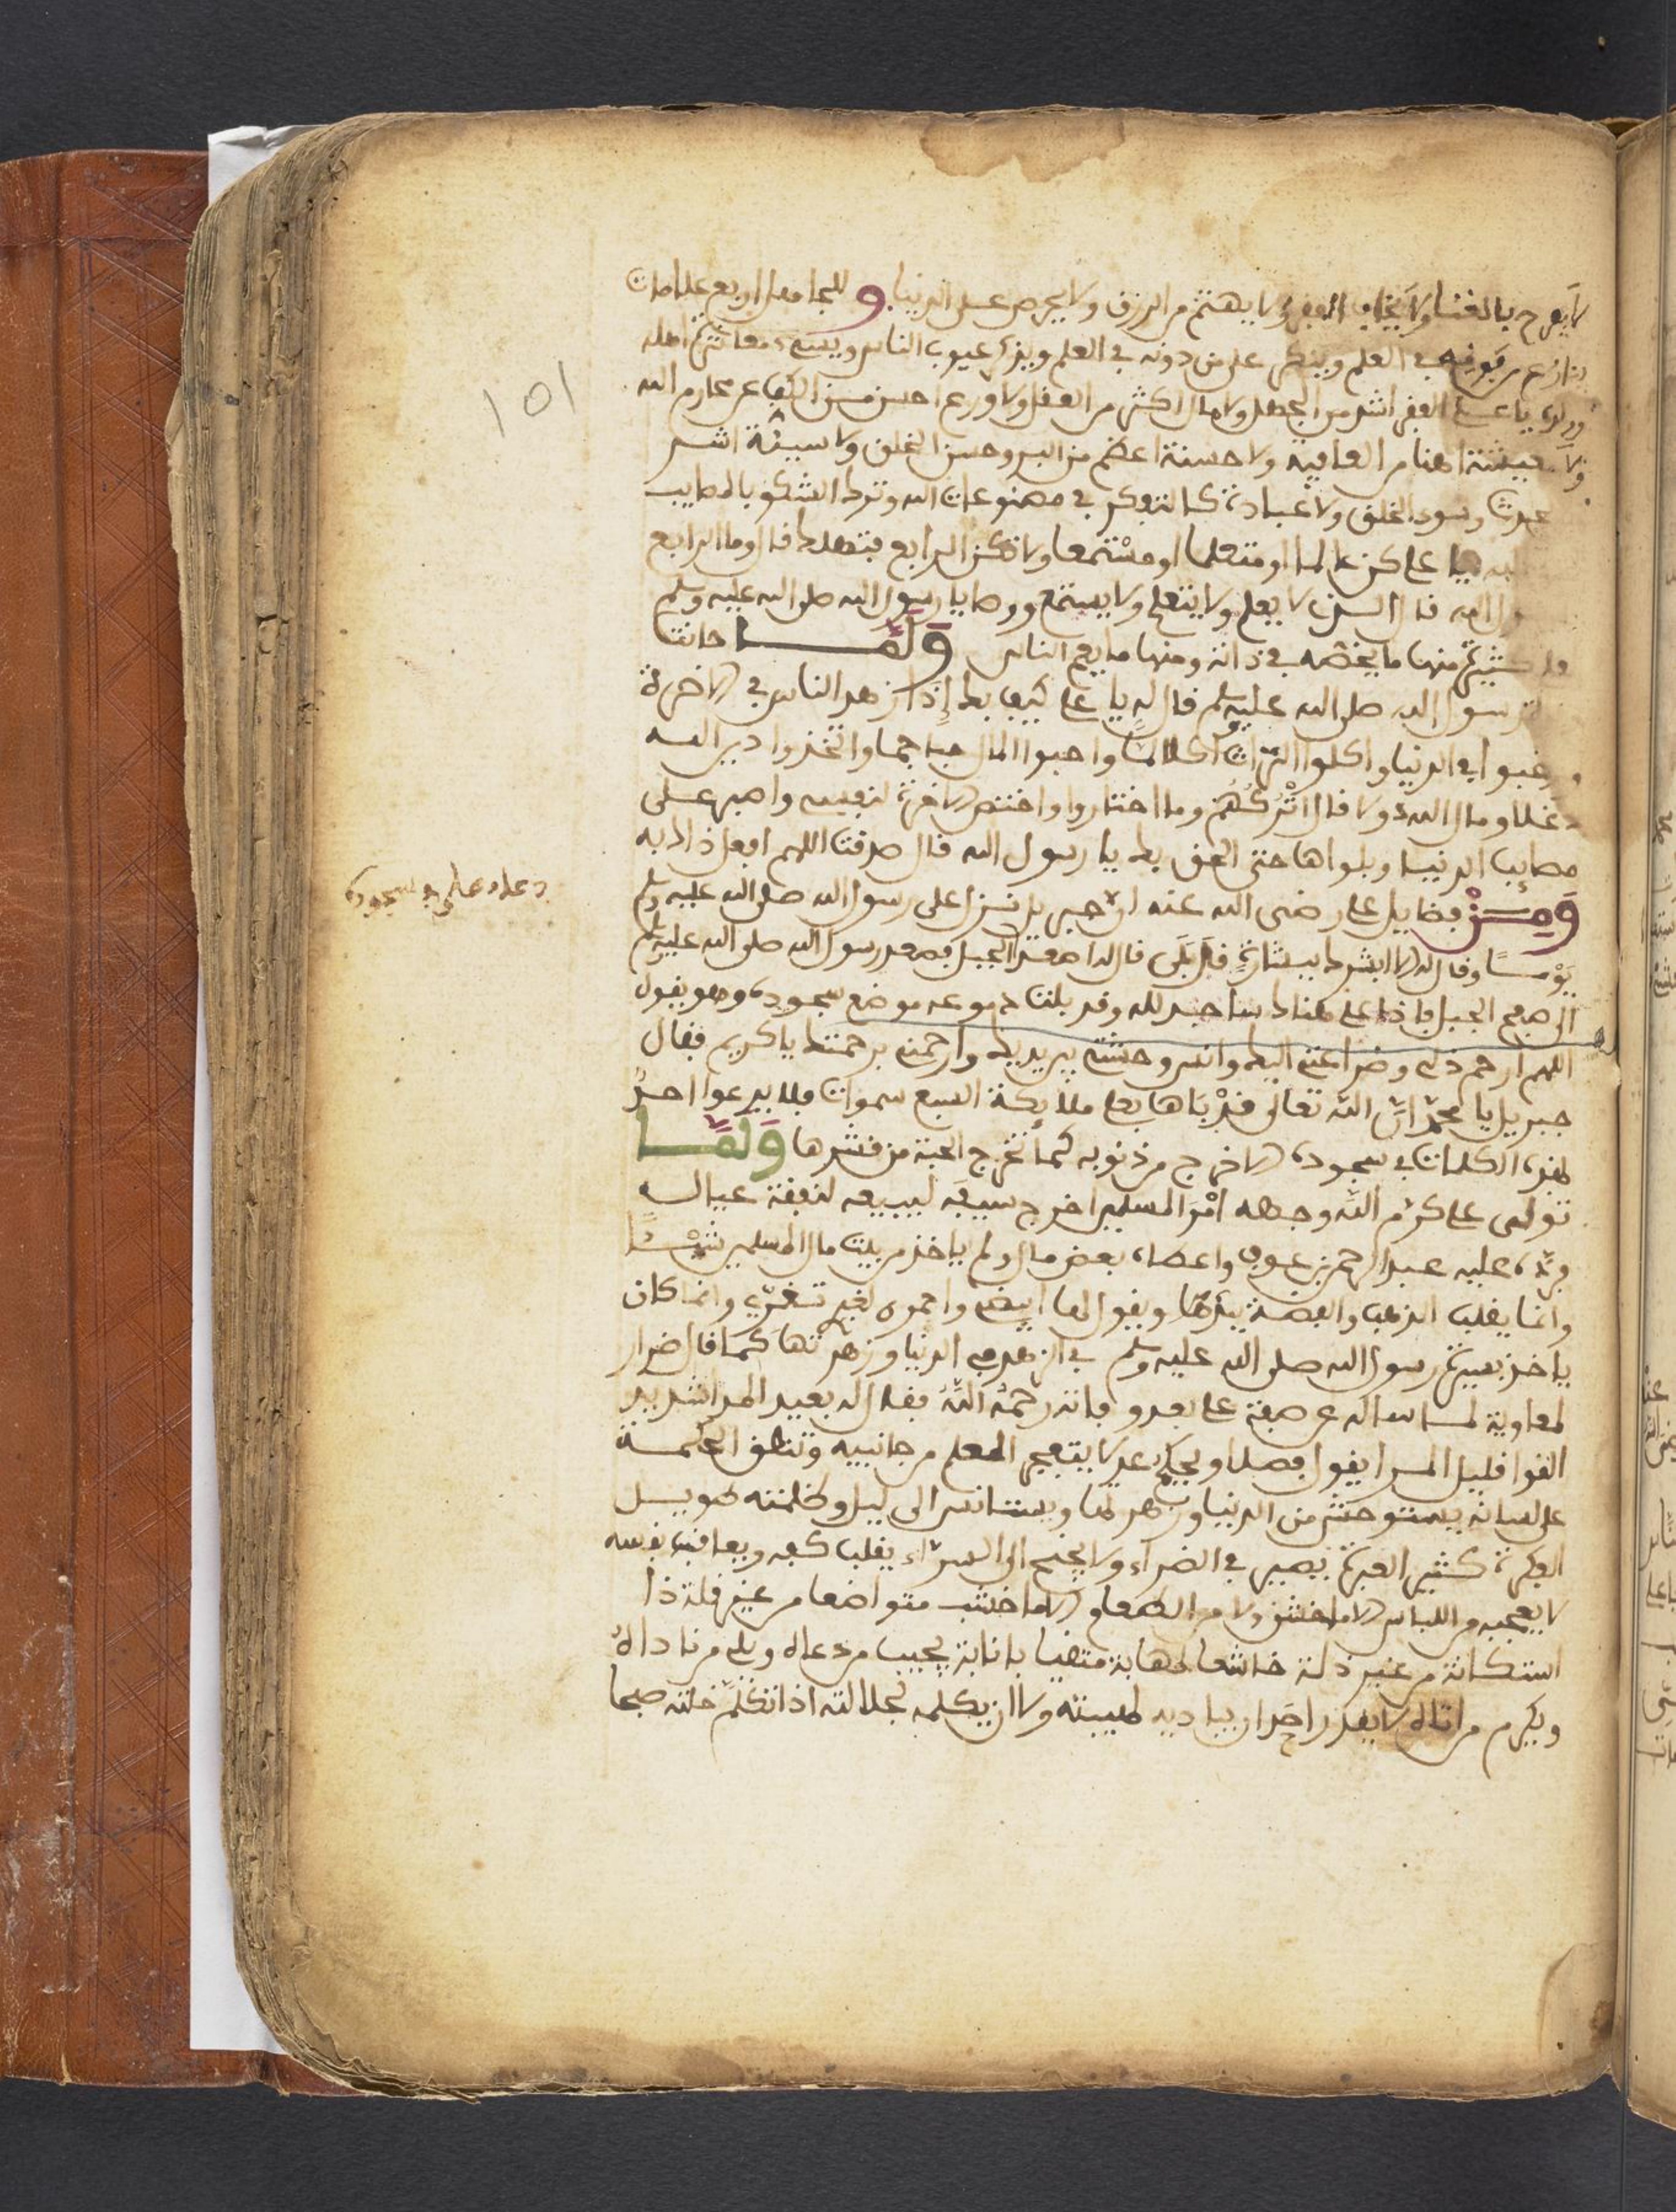 ١٥١
لا يفرح بالغنا ولا يخاف الفقر ولا يهتم من الرزق ولا يحرص على الدنيا و للجاهل اربع علامات
ينازع من فوقه في العلم ويتكبر على من دونه في العلم ويذكر عيوب الناس ويسيء معاشرة اهله
يا علي لا فقر اشد من الجهل ولا مال اكثر من العقل ولا ورع احسن من الكف عن محارم الله
ولا معيشة اهنا من العافية ولا حسنة اعظم من البر وحسن الخلق ولا سيئة اشر
وسوء الخلق ولا عبادة كالتفكر في مصنوعات الله وترك الشكو بالمصايب
يا علي كن عالما او متعلما او مستمعا ولا تكن الرابع فتهلك قال وما الرابع
رسول الله قال الذي لا يعلم ولا يتعلم ولا يستمع ووصايا رسول الله صلى الله عليه وسلم
كثيرة منها ما يخصه في ذاته ومنها ما يعم الناس وَلَمَّا حانت
رسول الله صلى الله عليه وسلم قال له يا علي كيف بك إذا زهد الناس في الاخرة
ورغبوا في الدنيا واكلوا التراث اكلا لمّا واحبوا المال حبا جما واتخذوا دين الله
دغلا ومال الله دولا قال اتركهم وما اختاروا واختص الاخرة لنفسه واصبر على
مصايب الدنيا وبلواها حتى الحق بك يا رسول الله قال صدقت اللهم افعل ذالك به
وَمِنْ فضايل علي رضى الله عنه ان جبريل نزل على رسول الله صلى الله عليه وسلم
يَوْماً وقال له الا ابشرك ببشارة قال بَلَى قال له اصعد الجبل فصعد رسول الله صلى الله عليه وسلم
الى الجبل فاذا علي هناك ساجد لله وقد بلت دموعه موضع سجوده وهو يقول
اللهم ارحم ذلي وضراعتي اليك وانس وحشتي بين يديك وارحمني برحمتك يا كريم فقال
جبريل يا محمّد انّ الله تعالى قدْ بَاهَا بعلي ملائكة السبع سموات فلا يدعوا احدٌ
بهذه الكلمات في سجوده الا خرج من ذنوبه كما تخرج الحبة من قشرها وَلَمَّا
تولى علي كرّم الله وجهه امْرَ المسلمين اخرج سيفه ليبيعه لنفقة عياله
فردّه عليه عبد الرحمن بن عوف واعطاه بعض مال ولم ياخذ من بيت مال المسلمين شيْئاً
وانما يقلب الذهب والفضة بيده ويقول لها ابيضي واحمري لغيري تغرّي وانما كان
ياخذ بسيرة رسول الله صلى الله عليه وسلم في الزهد في الدنيا وزهرتها كما قال ضرار
لمعاوية لما ساله عن صفة علي بعد وفاته رحمه اللهُ فقال له بعيد المدا شديد
القوا قليل المرا يقول فصلا ويحكم عدلا يتفجر العلم من جانبيه وتنطق الحكمة
على لسانه يستوحش من الدنيا وزهرتها ويستانس الى ليل وظلمته طويل
الفكرة كثير العبرة يصبر في الضراء ولا يجنح الى السراء يقلب كفه ويعاقب نفسه
لا يعجبه من اللباس الا ما خشن ولا من الطعام الا ما خشب متواضعا من غير قلة ذا
استكانة من غير ذلة خاشعا لمهابة متضيا بانابة يجيب من دعاه ويلي من ناداه
ويكرم من اتاه لا يقدر احد ان يباديه لهيبته ولا ان يكلمه لجلالته اذا تكلّم خلته صبحا
دعاء علي في سجوده